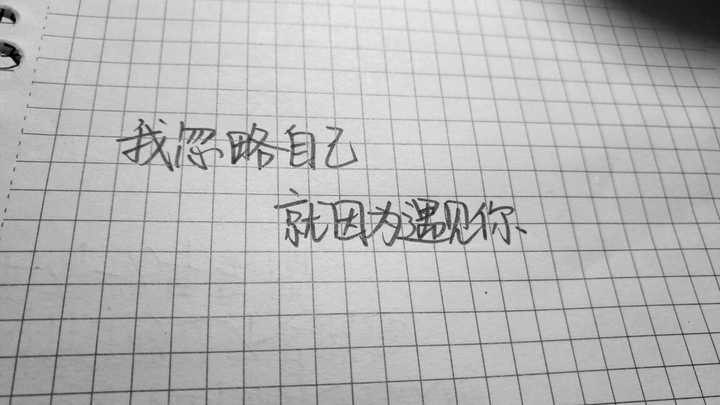 我忽略自己
就因为遇见你、